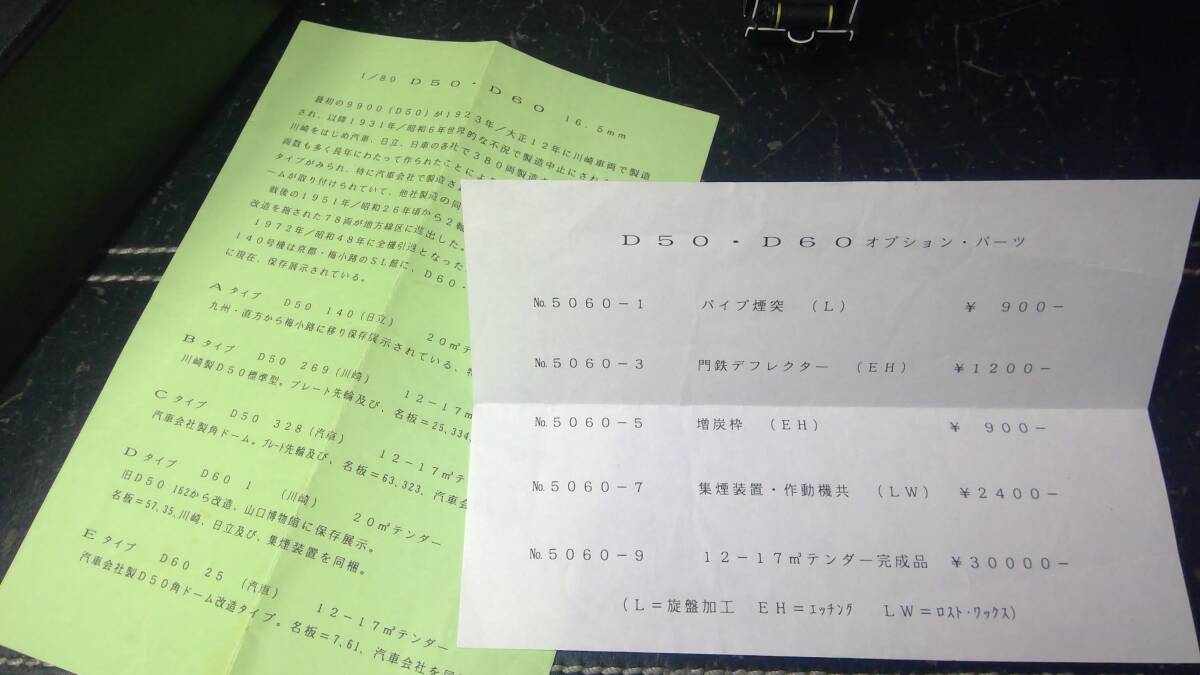 1/80 D50・D60 16.5mm
最初の9900(D50)が1923年/大正12年に川崎車両で製造
され、以降1931年/昭和6年世界的な不況で製造中止にされ
川崎をはじめ汽車、日立、日車の各社で380両製造
両数も多く長年にわたって作られたことによ
タイプがみられ、特に汽車会社で製造さ
ームが取り付けられていて、他社製造の同
戦後の1951年/昭和26年頃から2軸
改造を施された78両が地方線区に進出した。
1972年/昭和48年に全機引退となった
140号機は京都・梅小路のSL館に、D60-
に現在、保存展示されている。
Aタイプ D50 140(日立) 20㎥テ
九州・直方から梅小路に移り保存展示されている、特
Bタイプ D50 269(川崎) 12-17㎥
川崎製D50標準型。プレート先輪及び、名板=25,334,
Cタイプ D50 328(汽車) 12-17㎥テ
汽車会社製角ドーム。プレート先輪及び、名板=63,323、汽車会
Dタイプ D60 1 (川崎) 20㎥テンダー
旧D50 162から改造、山口博物館に保存展示。
名板=57,35、川崎、日立及び、集煙装置を同梱。
Eタイプ D60 25 (汽車) 12-17㎥テンダー
汽車会社製D50角ドーム改造タイプ。名板=7,61、汽車会社を同
D50・D60オプション・パーツ
№5060-1 パイプ煙突 (L) ¥ 900-
№5060-3 門鉄デフレクター (EH) ¥1200-
№5060-5 増炭枠 (EH) ¥ 900-
№5060-7 集煙装置・作動機共 (LW) ¥2400-
№5060-9 12-17㎥テンダー完成品 ¥30000-
(L=旋盤加工 EH=エッチング LW=ロスト・ワックス)